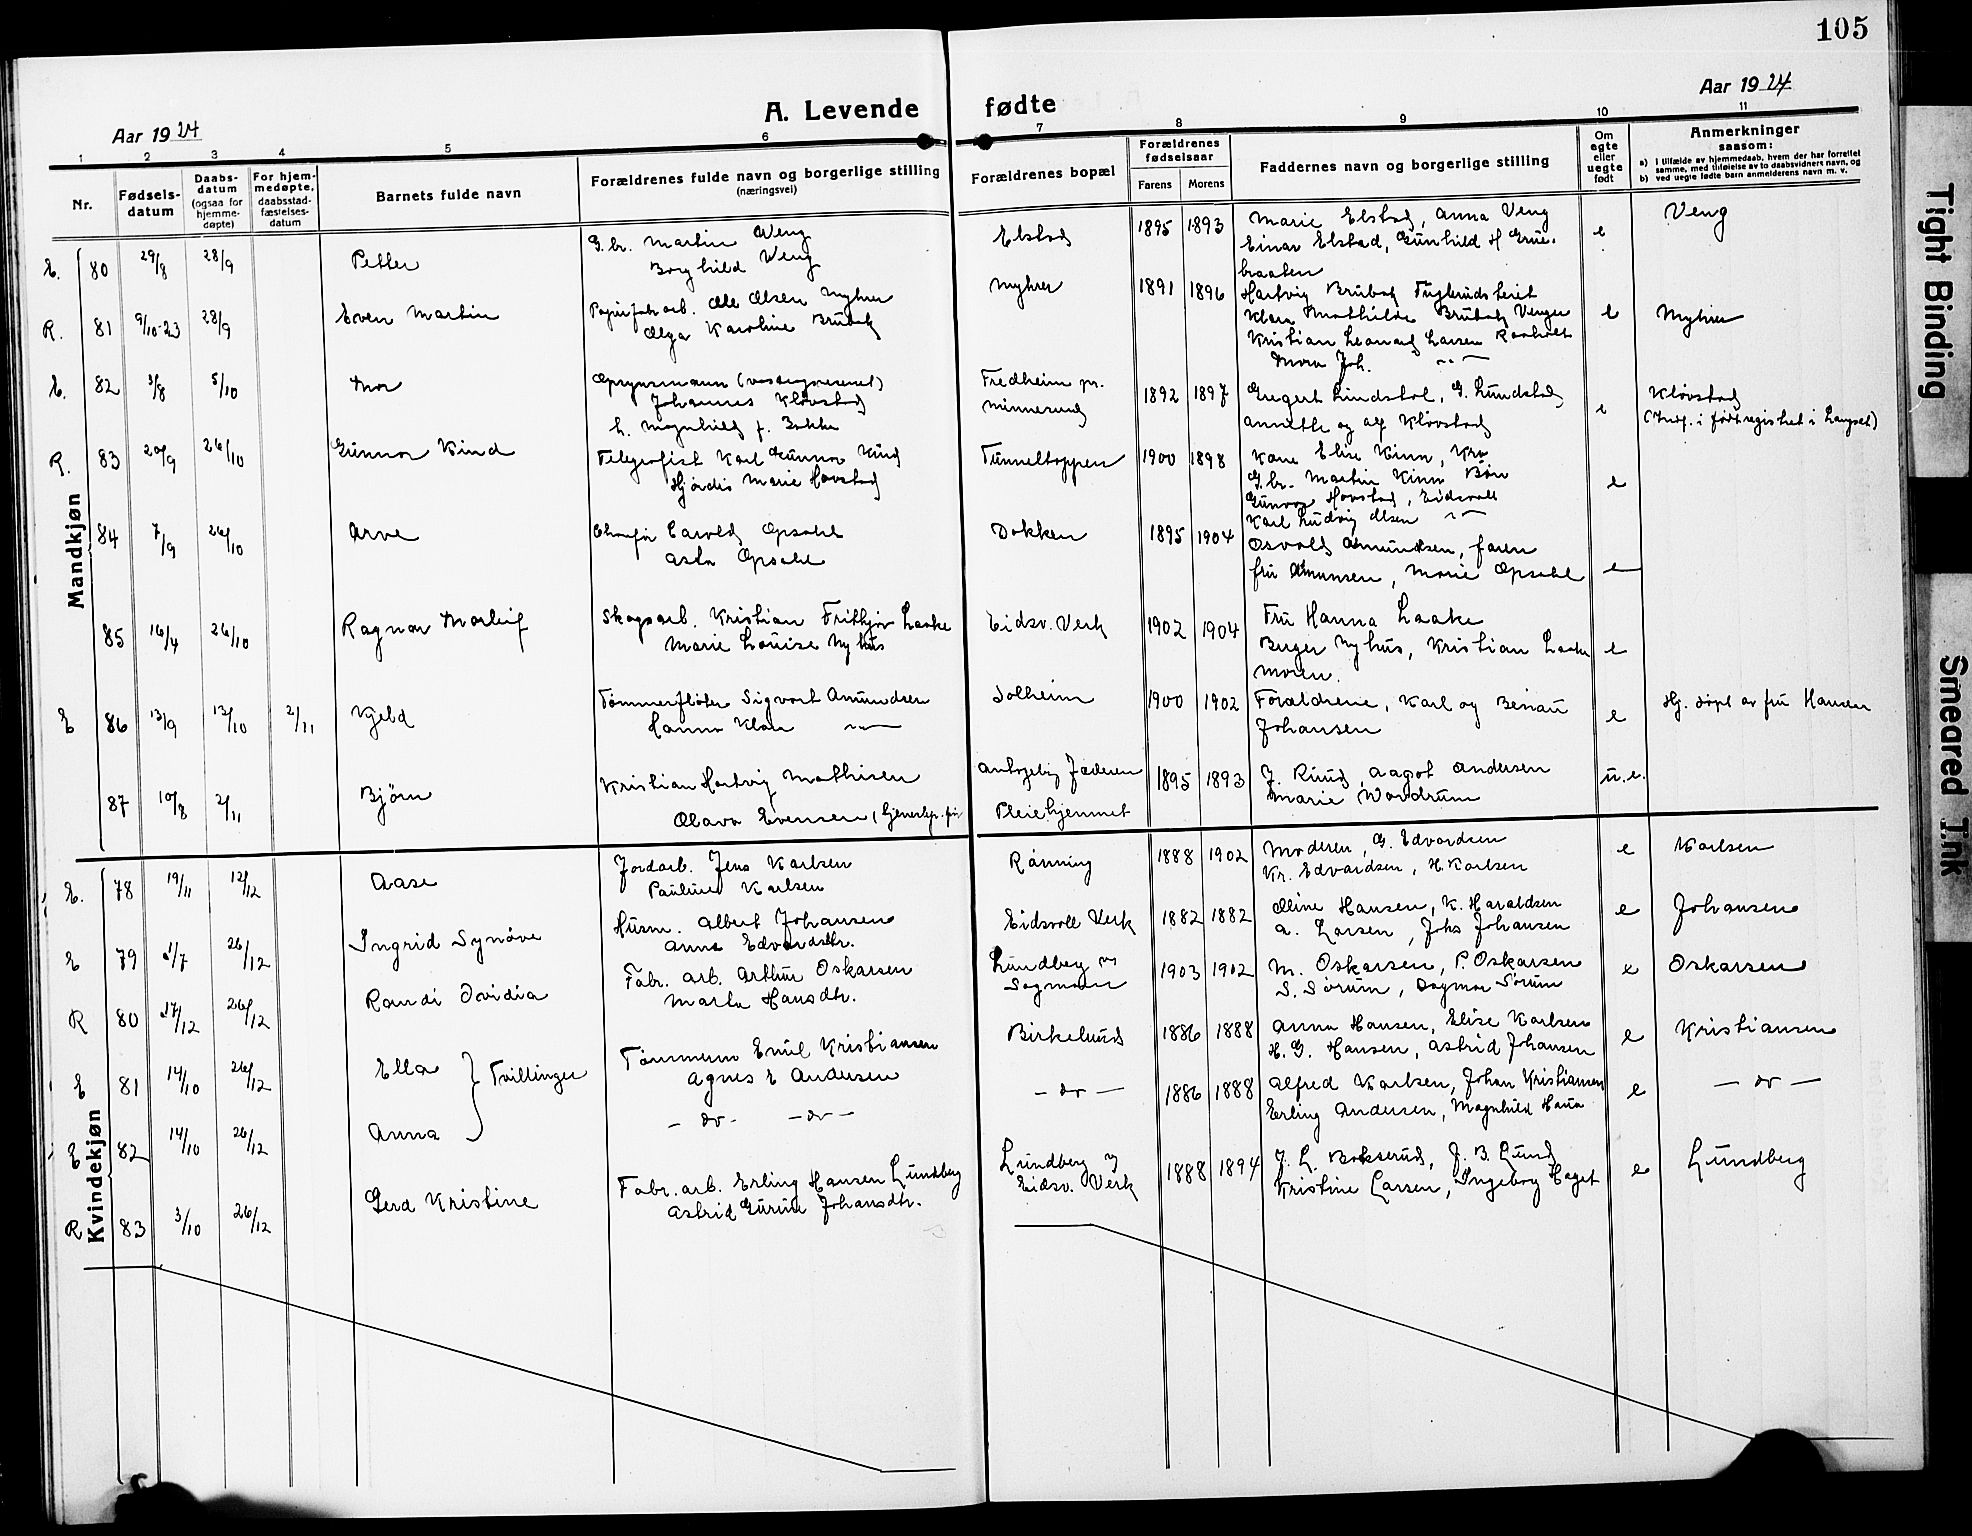 105
Aar 1924
A. Levende fødte
Aar 1924
1 2 3 4 5 6 7 8 9 10 11
Nr.
Fødsels-
datum
Daabs-
datum
(ogsaa for
hjemme-
døpte)
For hjem-
medøpte,
daabsstad-
fæstelses-
datum
Barnets fulde navn
Forældrenes fulde navn og borgerlige stilling
(næringsvei)
Forældrenes bopæl
Forældrenes
fødselsaar
Farens Morens
Faddernes navn og borgerlige stilling
Om
egte
eller
uegte
født
Anmerkninger
saasom:
a) i tilfælde av hjemmedaab, hvem der har forrettet
samme, med tilføielse av to daabsvidners navn, og
b) ved uegte fødte barn anmelderens navn m. v.
Mandkjøn
E. 80 29/8 28/9 Petter
G.br. Martin Weng
Borghild Weng
Elstad 1895 1893
Marie Elstad, Anna Veng
Einar Elstad, Gunhild H Grue-
braaten
e Veng
R. 81 9/10-23 28/9 Even Martin
Papirfabarb. Ole Olsen Myhrer
Olga Karoline Brubak
Myhrer 1891 1896
Hartvig Brubak Fuglerudsteiet
Klara Mathilde Brubak Venger
Kristian Leonard Larsen Raaholt
Mora Joh. -"-
e Myhrer
E. 82 3/8 5/10 Thor
Opsynsmann (vasdragsvesenet)
Johannes Kløvstad
h. Magnhild f. Bakke
Fredheim pr.
Minnesund 1892 1897
Engert Lindstol, G. Lundstad
Annethe og Alf Kløvstad
e Kløvstad
(Indf. i fødtregistret i Langset)
R. 83 20/9 26/10 Gunnar Kind
Telegrafist Karl Gunnar Kind
Hjørdis Marie Hovstad
Tunneltoppen 1900 1898
Kane Elise Kinn, Kra
G.br. Martin Kinn Bøn
Gunvor Hovstad, Eidsvoll
Karl Ludvig Olsen -"-
e
84 7/9 26/10 Arve
Chaufør Harold Opsahl
Asta Opsahl
Dokken 1895 1904
Osvald Amundsen, faren
fru Amunsen, Marie Opsahl
e
85 16/4 26/10 Ragnar Thorleif
Skogsarb. Kristian Frithjov Laake
Marie Louise Nyhus
Eidsv. Verk 1902 1904
Fru Hanna Laake
Birger Nyhus, Kristian Laake
Moren.
e
E 86 13/9 13/10 2/11 Kjeld
Tømmerfløter Sigvart Amundsen
Hanna Klara -"-
Solheim 1900 1902
Forældrene, Karl og Benau
Johansen
e Hj. døpt av fru Hansen
87 10/8 2/11 Bjørn
Kristian Hartvig Mathisen
Olava Evensen
Jæderen
Pleiehjemmet 1895 1893
J. Ruud, Aagot Andersen
Marie Wordrum
u.e.
Kvindekjøn
E. 78 19/11 12/12 Aase
Jordarb. Jens Karlsen
Pauline Karlsen
Rønning 1888 1902
Moderen, G. Edvardsen
Kr. Edvardsen, H. Karlsen
e Karlsen
E 79 1/7 26/12 Ingrid Synøve
Husm. Albert Johansen
Anna Edvardsdtr.
Eidsvoll Verk 1882 1882
Oline Hansen, K. Haraldsen
A. Larsen, Johs Johansen
e Johansen
R 80 17/12 26/12 Randi Ovidia
Fabr. arb. Arthur Oskarsen
Marta Hansdtr.
Lundberg v/
Sagmoen 1903 1902
M. Oskarsen, P. Oskarsen
S. Sørum, Dagmar Sørum
e Oskarsen
E 81 14/10 26/12 Ella } Tvillinger
Tømmerm Emil Kristiansen
Agnes E Andersen
Birkelund 1886 1888
Anna Hansen, Elise Karlsen
H. G. Hansen, Astrid Johansen
e Kristiansen
E 82 14/10 26/12 Anna
- do - - do -
- do - 1886 1888
Alfred Karlsen, Johan Kristiansen
Erling Andersen, Magnhild Haua
e - do -
R 83 3/10 26/12 Gerd Kristine
Fabr. arb. Erling Hansen Lundberg
Astrid Gurine Johansdtr.
Lundberg v/
Eidsv. Verk 1888 1894
J. L. Bokserud, J. B. Lund
Kristine Larsen, Ingeborg Haget
e Lundberg
Tight Binding
Smeared Ink